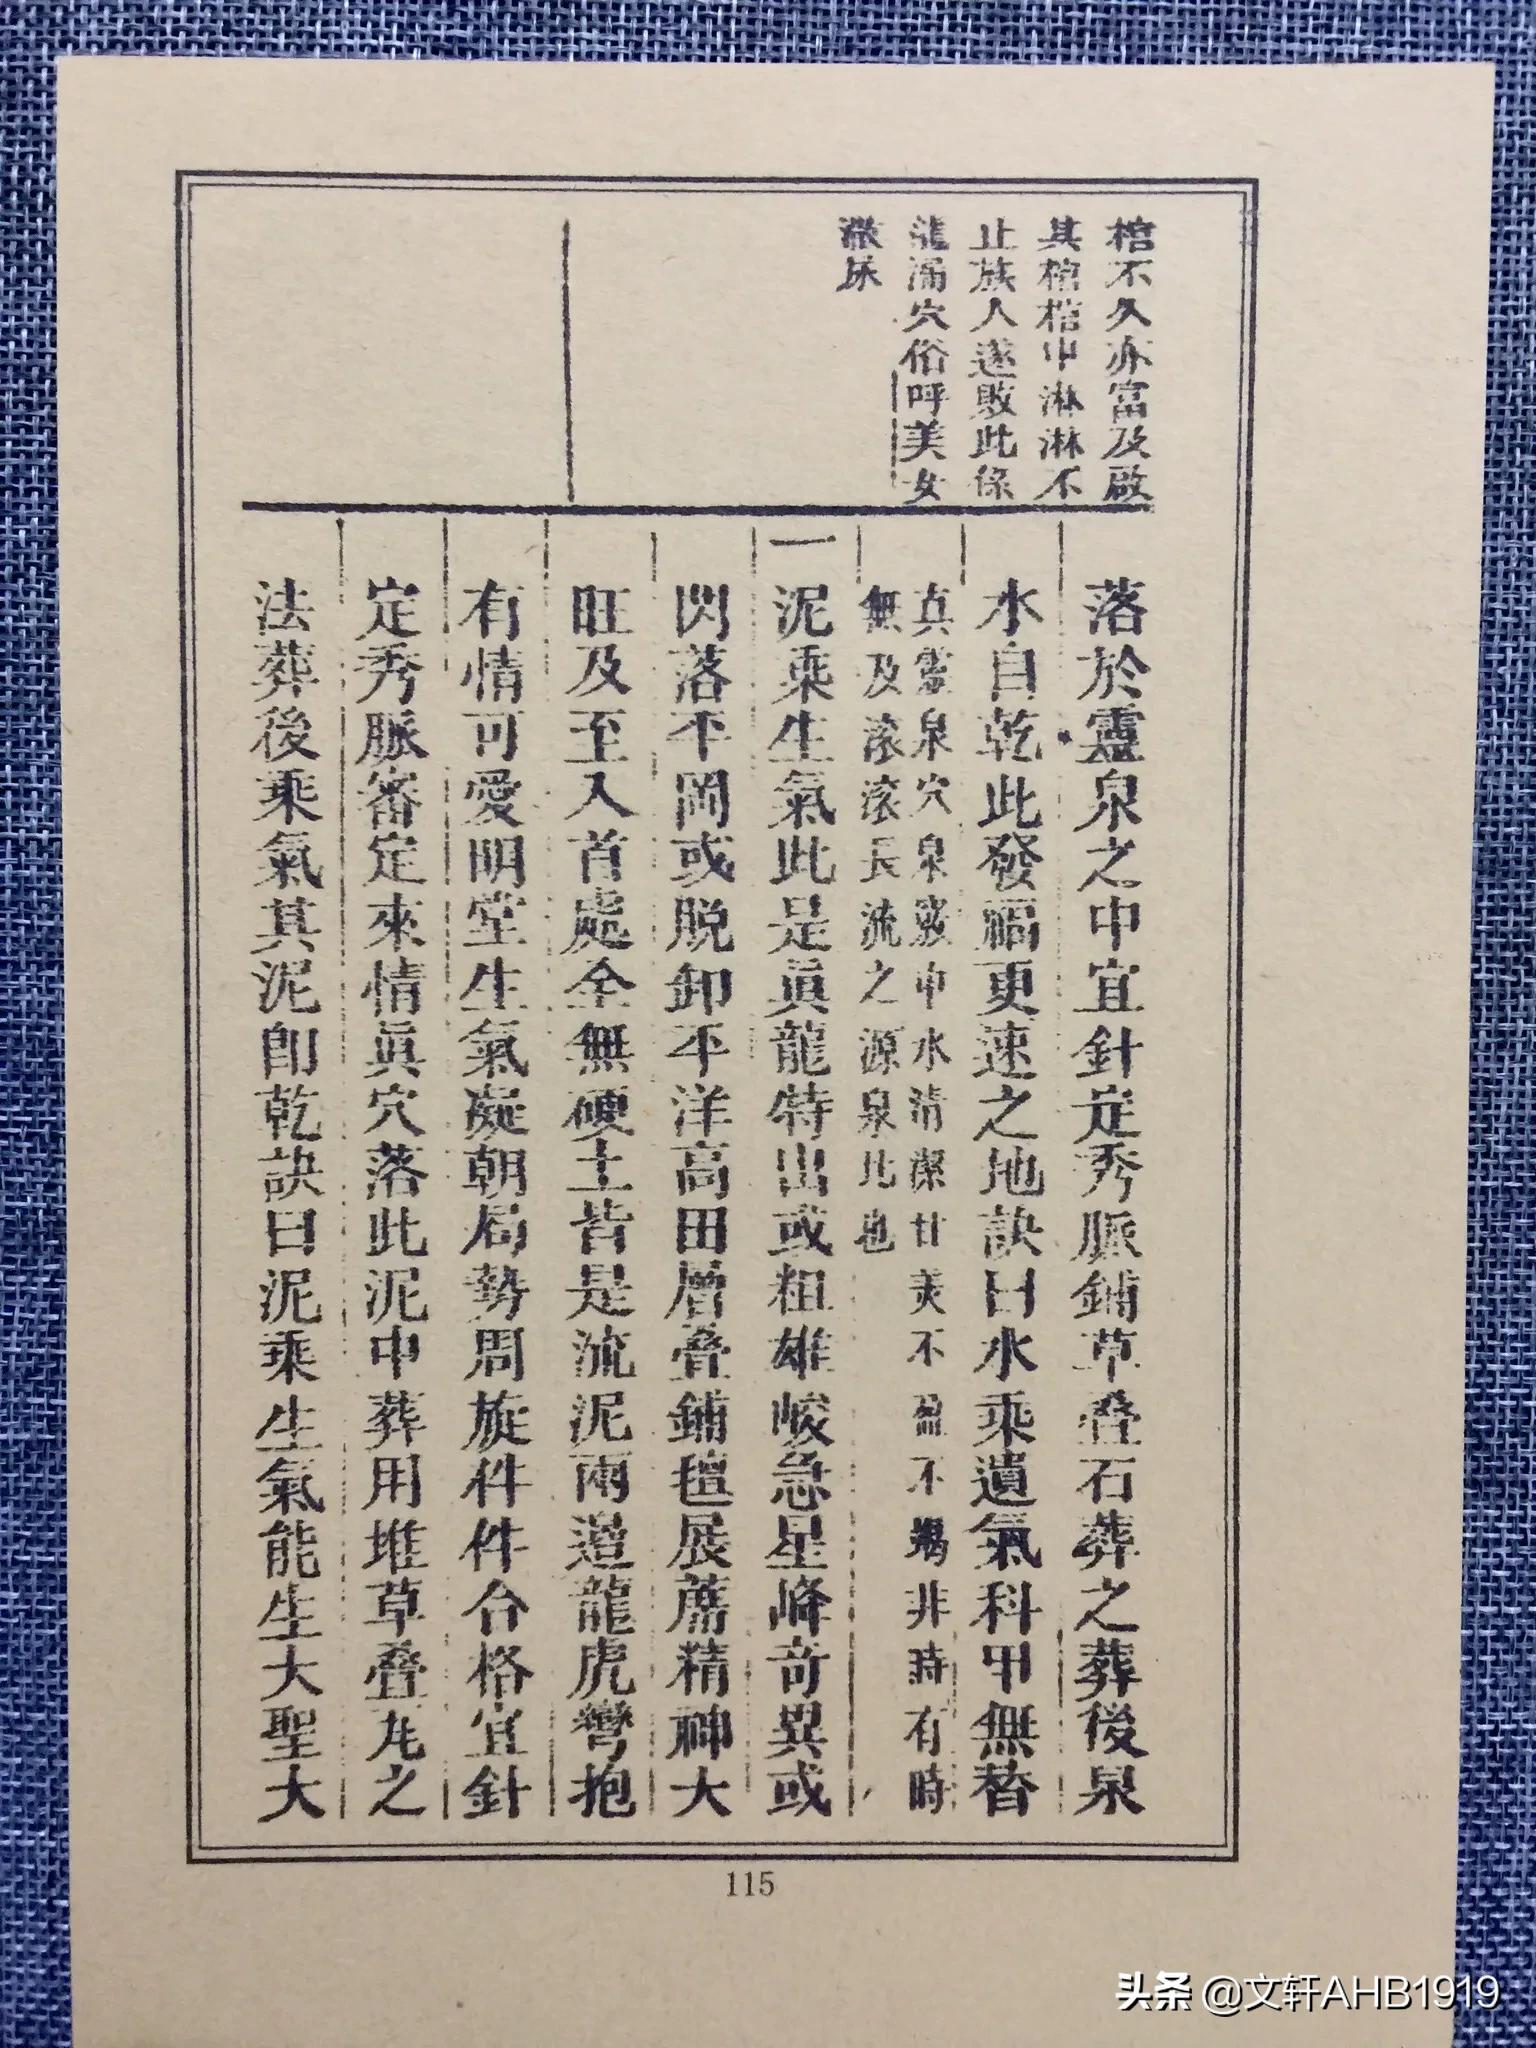 棺不久亦富及啟
其棺棺中淋淋不
止族人遂敗此係
龍漏穴俗呼美女
撒尿
落於靈泉之中宜針定秀脈鋪草叠石葬之葬後泉
水自乾此發福更速之地訣曰水乘遺氣科甲無替
真靈泉穴泉竅中水清潔甘美不盈不竭非時有時
無及滚滚長流之源泉比也
一泥乘生氣此是眞龍特出或粗雄峻急星峰奇異或
閃落平岡或脱卸平洋高田層叠鋪氊展蓆精神大
旺及至入首處全無硬土皆是流泥兩邉龍虎彎抱
有情可愛明堂生氣凝朝局勢周旋件件合格宜針
定秀脈審定來情眞穴落此泥中葬用堆草叠瓦之
法葬後乘氣其泥卽乾訣曰泥乘生氣能生大聖大
115
头条 @文轩AHB1919